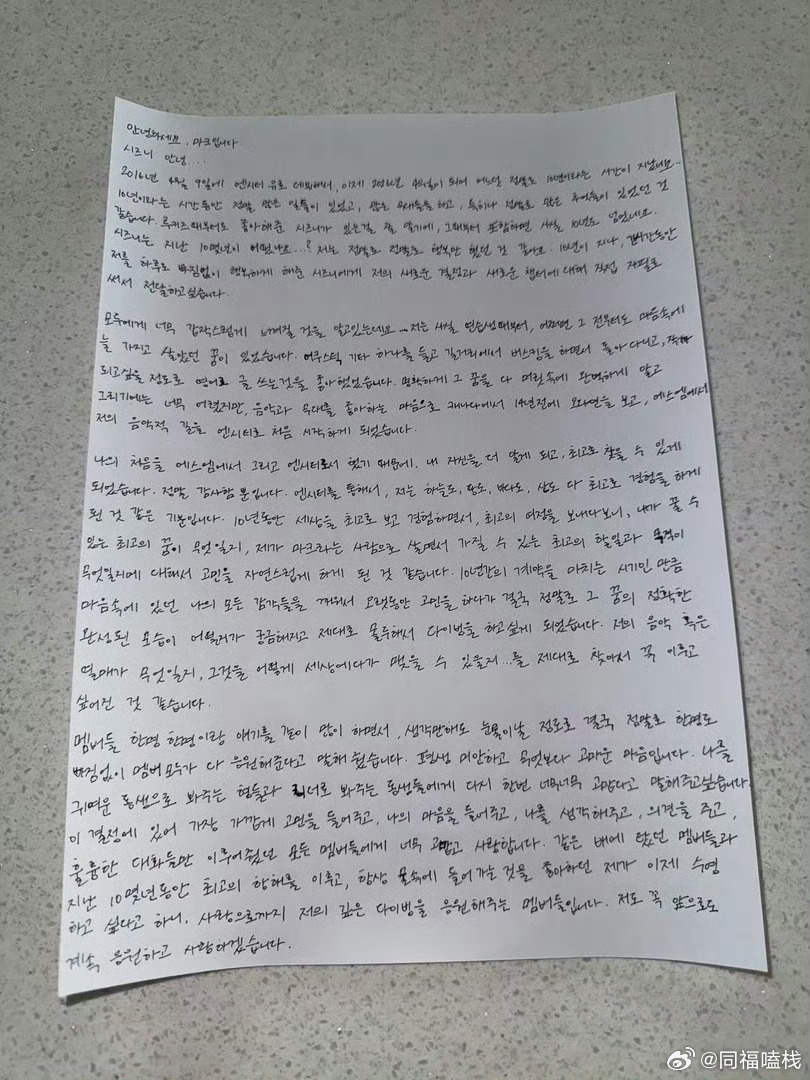 안녕하세요, 마크입니다
시즈니 안녕...
2016년 4월 9일에 엔시티 유로 데뷔해서, 이제 2026년 4월이 되어 어느덧 정말로 10년이라는 시간이 지났네요..
10년이라는 시간동안 정말 많은 일들이 있었고, 많은 무대들을 하고, 특히나 정말로 많은 추억들이 있었던 것
같습니다. 루키즈때부터도 좋아해준 시즈니가 있는걸 잘 알기에, 그때부터 포함하면 사실 10년도 넘었네요.
시즈니는 지난 10몇년이 어땠나요...? 저는 정말로 정말로 행복만 했던 것 같아요. 10년이 지나, 긴시간동안
저를 하루도 빠짐없이 행복하게 해준 시즈니에게 저의 새로운 결정과 새로운 챕터에 대해 직접 자필로
써서 전달하고싶습니다.
모두에게 너무 갑작스럽게 느껴질 것을 알고있는데요... 저는 사실 연습생때부터, 어쩌면 그 전부터도 마음속에
늘 가지고 살았던 꿈이 있었습니다. 어쿠스틱 기타 하나를 들고 길거리에서 버스킹을 하면서 돌아다니고, 작가
되고싶을 정도로 영어로 글 쓰는것을 좋아했었습니다. 명확하게 그 꿈을 다 머릿속에 완벽하게 알고
그리기에는 너무 어렸지만, 음악과 무대를 좋아하는 마음으로 캐나다에서 14년전에 오디션을 보고, 에스엠에서
저의 음악적 길을 엔시티로 처음 시작하게 되었습니다.
나의 처음을 에스엠에서 그리고 엔시티로서 했기 때문에, 내 자신을 더 알게 되고, 최고로 찾을 수 있게
되었습니다. 정말 감사할 뿐입니다. 엔시티를 통해서, 저는 하늘도, 땅도, 바다도, 산도 다 최고로 경험을 하게
된 것 같은 기분입니다. 10년동안 세상을 최고로 보고 경험하면서, 최고의 여정을 보내다보니, 내가 꿀 수
있는 최고의 꿈이 무엇일지, 제가 마크라는 사람으로 살면서 가질 수 있는 최고의 할일과 목적이
무엇일지에 대해서 고민을 자연스럽게 하게 된 것 같습니다. 10년간의 계약을 마치는 시기인 만큼
마음속에 있던 나의 모든 감각들을 깨워서 오랫동안 고민을 하다가 결국 정말로 그 꿈의 정확한
완성된 모습이 어떨지가 궁금해지고 제대로 몰두해서 다이빙을 하고싶게 되었습니다. 저의 음악 혹은
열매가 무엇일지, 그것을 어떻게 세상에다가 맺을 수 있을지...를 제대로 찾아서 꼭 이루고
싶어진 것 같습니다.
멤버들 한명 한명이랑 얘기를 같이 많이 하면서, 생각만해도 눈물이날 정도로 결국 정말로 한명도
빠짐없이 멤버 모두가 다 응원해준다고 말해 줬습니다. 평생 미안하고 무엇보다 고마운 마음입니다. 나를
귀여운 동생으로 봐주는 형들과 리더로 봐주는 동생들에게 다시 한번 너무너무 고맙다고 말해주고싶습니다.
이 결정에 있어 가장 가깝게 고민을 들어주고, 나의 마음을 들어주고, 나를 생각해주고, 의견을 주고,
훌륭한 대화들만 이루어줬던 모든 멤버들에게 너무 고맙고 사랑합니다. 같은 배에 탔던 멤버들과
지난 10몇년동안 최고의 항해를 이루고, 항상 물속에 들어가는 것을 좋아하던 제가 이제 수영
하고 싶다고 하니, 사랑으로까지 저의 깊은 다이빙을 응원해주는 멤버들입니다. 저도 꼭 앞으로도
계속 응원하고 사랑하겠습니다.
@同福嗑栈